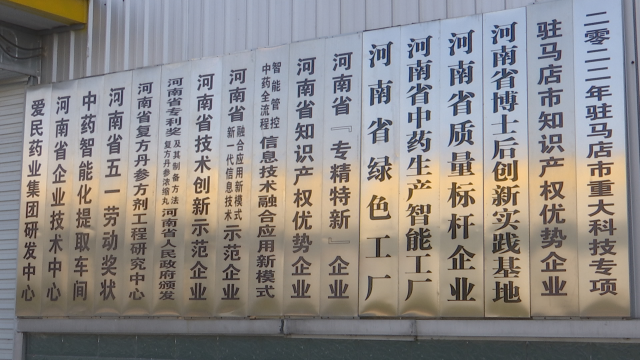 爱民药业集团研发中心
河南省企业技术中心
中药智能化提取车间
河南省五一劳动奖状
河南省复方丹参方剂工程研究中心
河南省专利奖
及其制备方法
复方丹参浓缩丸
河南省人民政府颁发
河南省技术创新示范企业
河南省
融合应用新模式
新一代信息技术
示范企业
智能管控
中药全流程
信息技术融合应用新模式
河南省知识产权优势企业
河南省『专精特新』企业
河南省绿色工厂
河南省中药生产智能工厂
河南省质量标杆企业
河南省博士后创新实践基地
驻马店市知识产权优势企业
二零二二年驻马店市重大科技专项